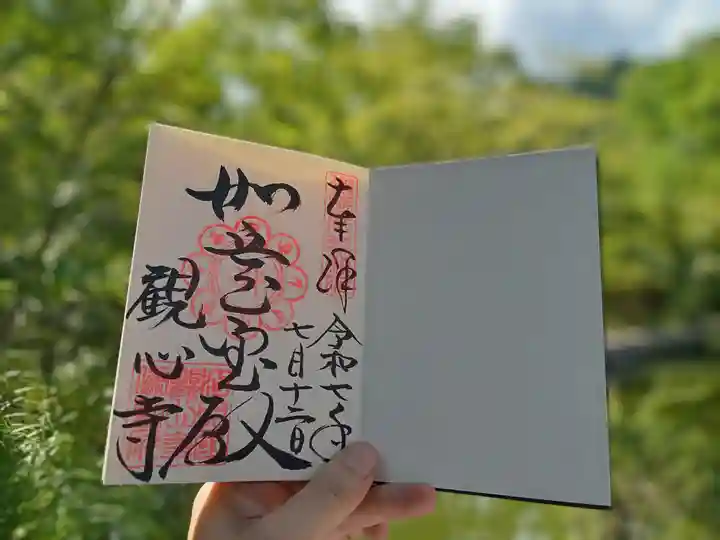 奉拝 令和七年
七月十二日
如意宝殿
観心寺